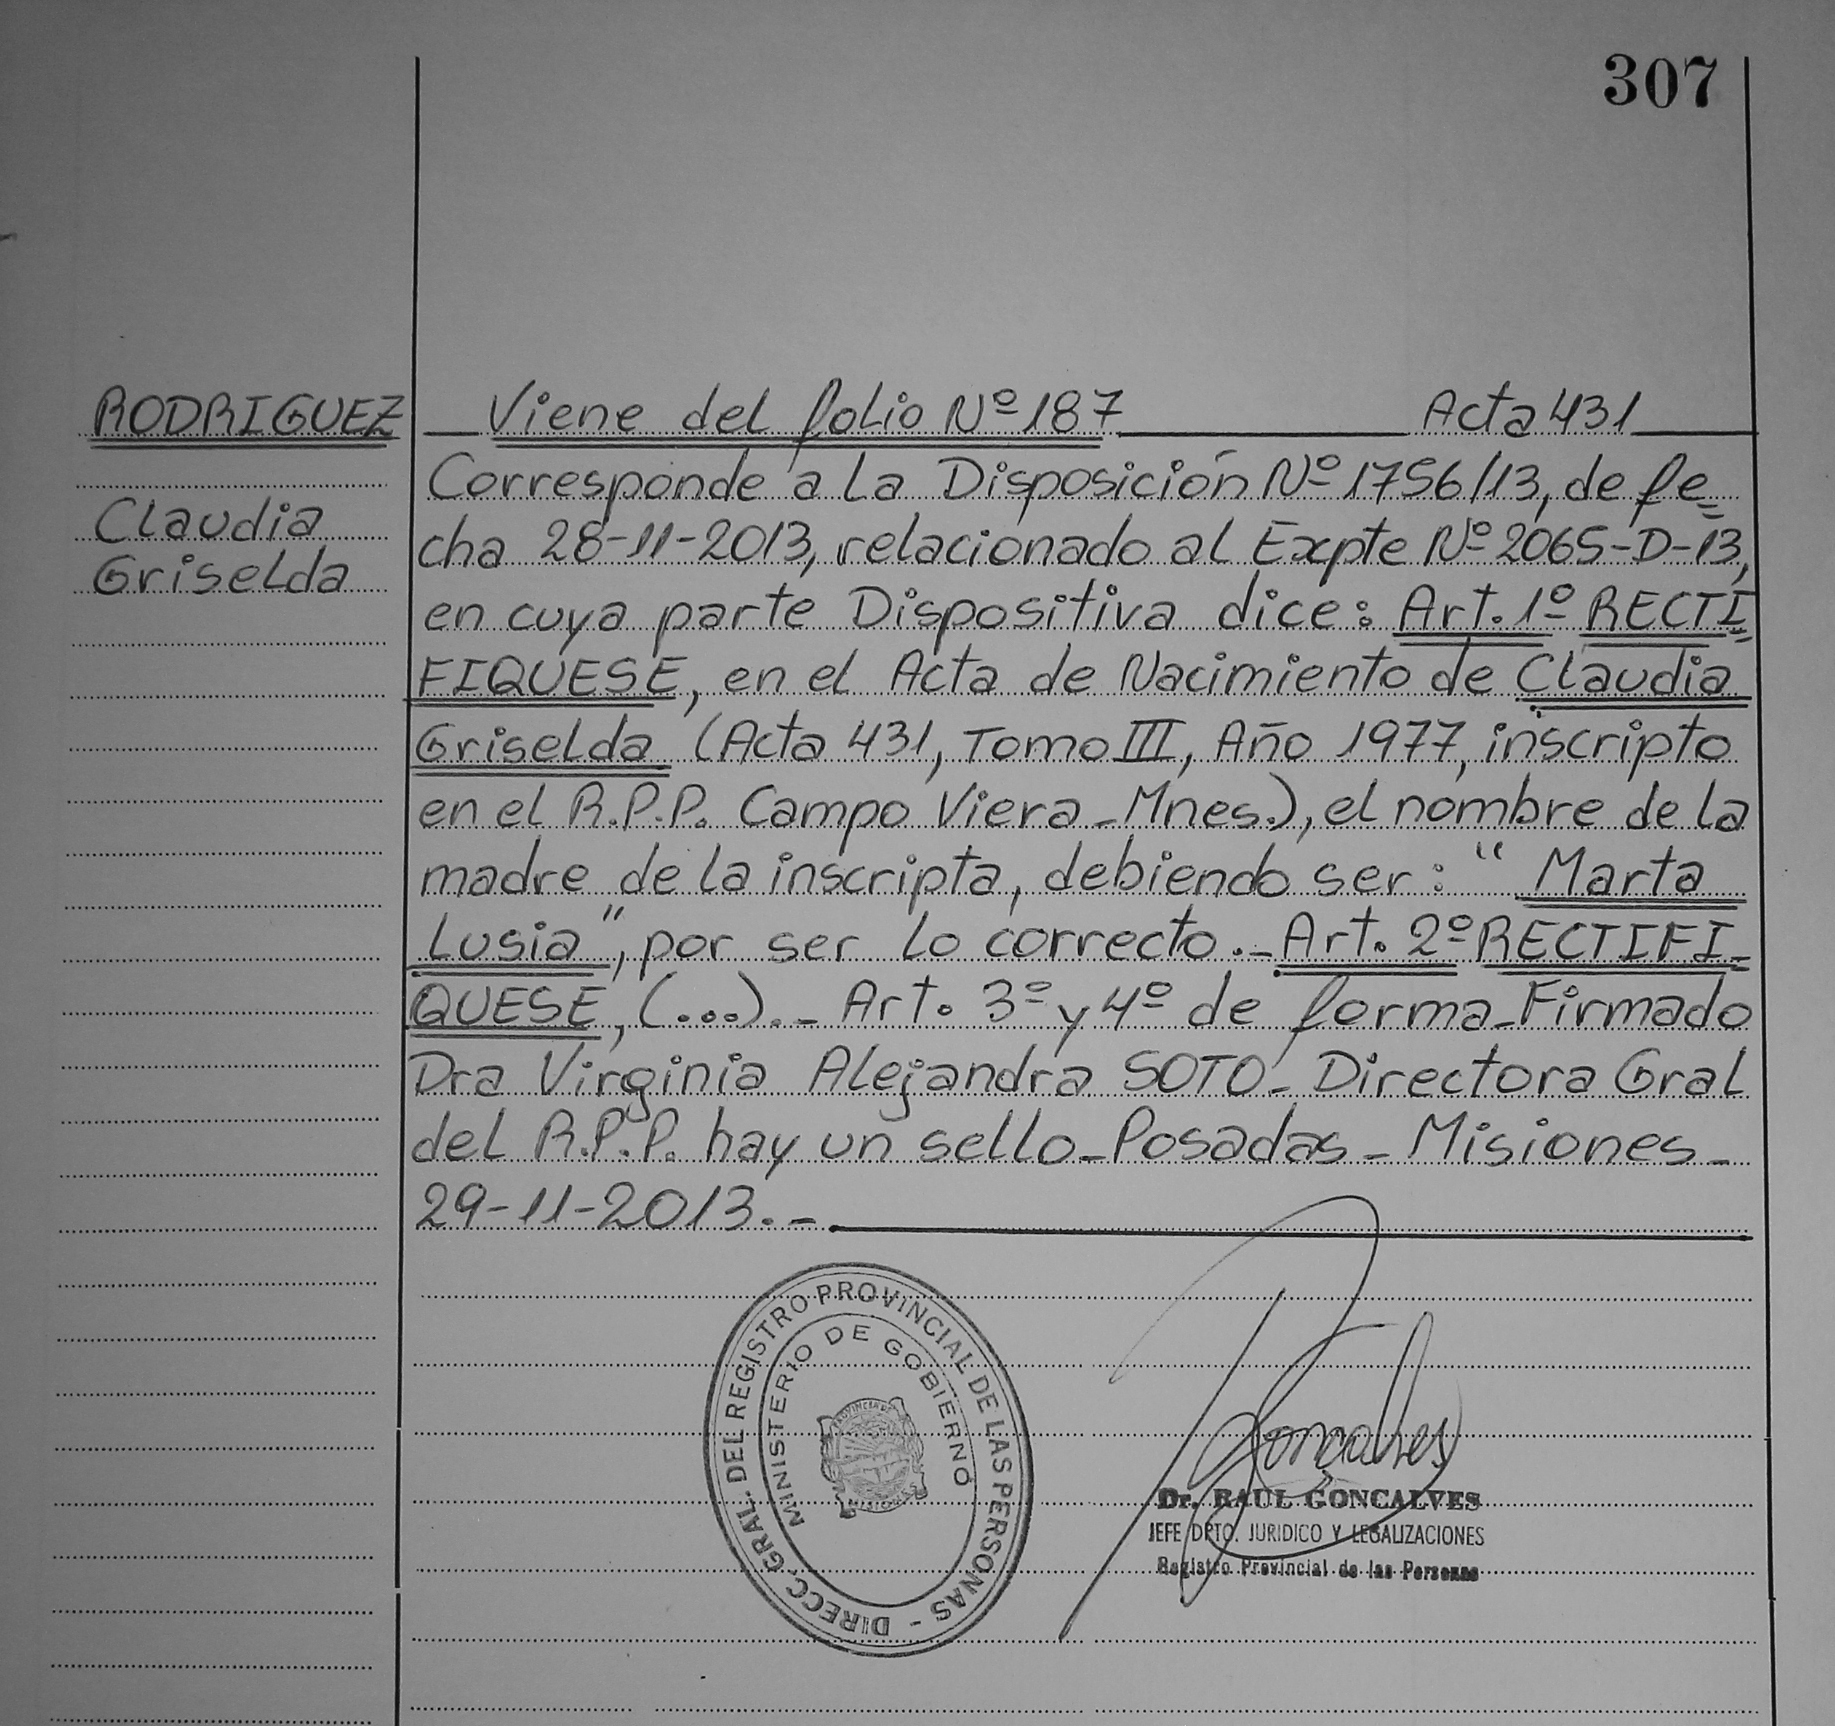 307
RODRIGUEZ
Claudia
Griselda
Viene del folio Nº 187 Acta 431
Corresponde a la Disposición Nº 1756/13, de fe=
cha 28-11-2013, relacionado al Expte Nº 2065-D-13,
en cuya parte Dispositiva dice: Art. 1º RECTI=
FIQUESE, en el Acta de Nacimiento de Claudia
Griselda (Acta 431, Tomo III, Año 1977, inscripto
en el R.P.P. Campo Viera - Mnes.), el nombre de la
madre de la inscripta, debiendo ser: "Marta
Lusia", por ser lo correcto.- Art. 2º RECTIFI-
QUESE, (...).- Art. 3º y 4º de forma - Firmado
Dra Virginia Alejandra SOTO - Directora Gral
del R.P.P. hay un sello - Posadas - Misiones -
29-11-2013.-
DIRECC. GRAL. DEL REGISTRO PROVINCIAL DE LAS PERSONAS -
MINISTERIO DE GOBIERNO
PROVINCIA DE
MISIONES
Gonçalves
Dr. RAUL GONCALVES
JEFE DPTO. JURIDICO Y LEGALIZACIONES
Registro Provincial de las Personas